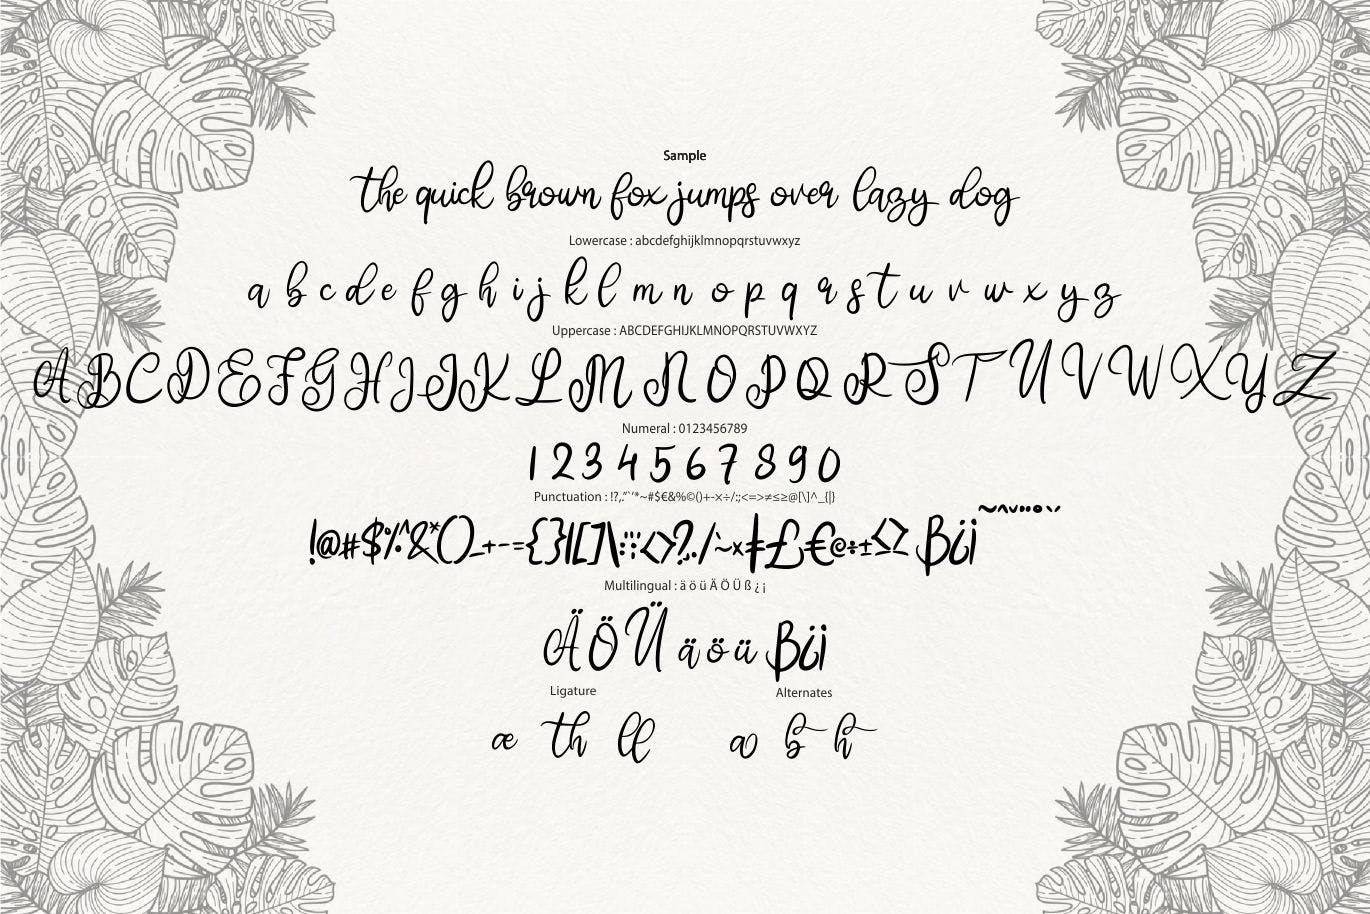 Sample
the quick brown fox jumps over lazy dog
Lowercase : abcdefghijklmnopqrstuvwxyz
a b c d e f g h i j k l m n o p q r s t u v w x y z
Uppercase : ABCDEFGHIJKLMNOPQRSTUVWXYZ
A B C D E F G H I J K L M N O P Q R S T U V W X Y Z
Numeral : 0123456789
1 2 3 4 5 6 7 8 9 0
Punctuation : !?,."`'*~#$€&%©()+-×÷/:;<=>≠≤≥@[\]^_{|}
!@#$%^&*()_+-={}|[]\:;<>?,./~×‡£€@÷±≤≥ ß¿¡
Multilingual : ä ö ü Ä Ö Ü ß ¿ ¡
Ä Ö Ü ä ö ü ß¿¡
Ligature Alternates
æ th ll a b h